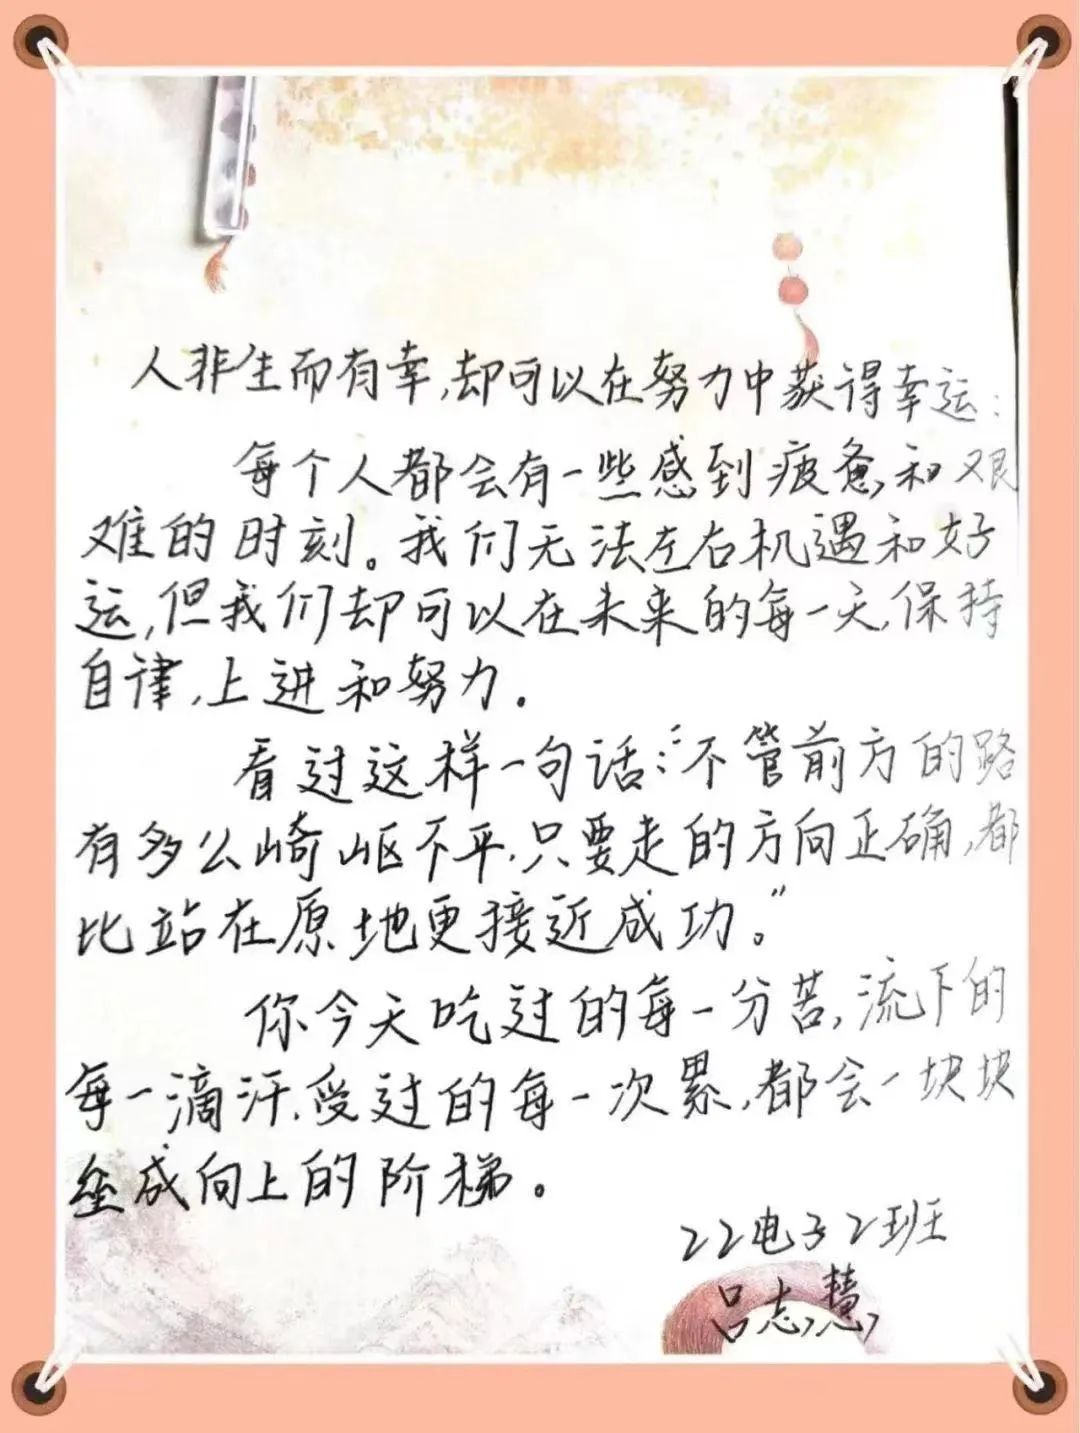 人非生而有幸,却可以在努力中获得幸运:
每个人都会有一些感到疲惫和艰
难的时刻。我们无法左右机遇和好
运,但我们却可以在未来的每一天,保持
自律,上进和努力.
看过这样一句话:“不管前方的路
有多么崎岖不平,只要走的方向正确,都
比站在原地更接近成功。”
你今天吃过的每一分苦,流下的
每一滴汗,受过的每一次累,都会一块块
垒成向上的阶梯。
22电子2班
吕志慧